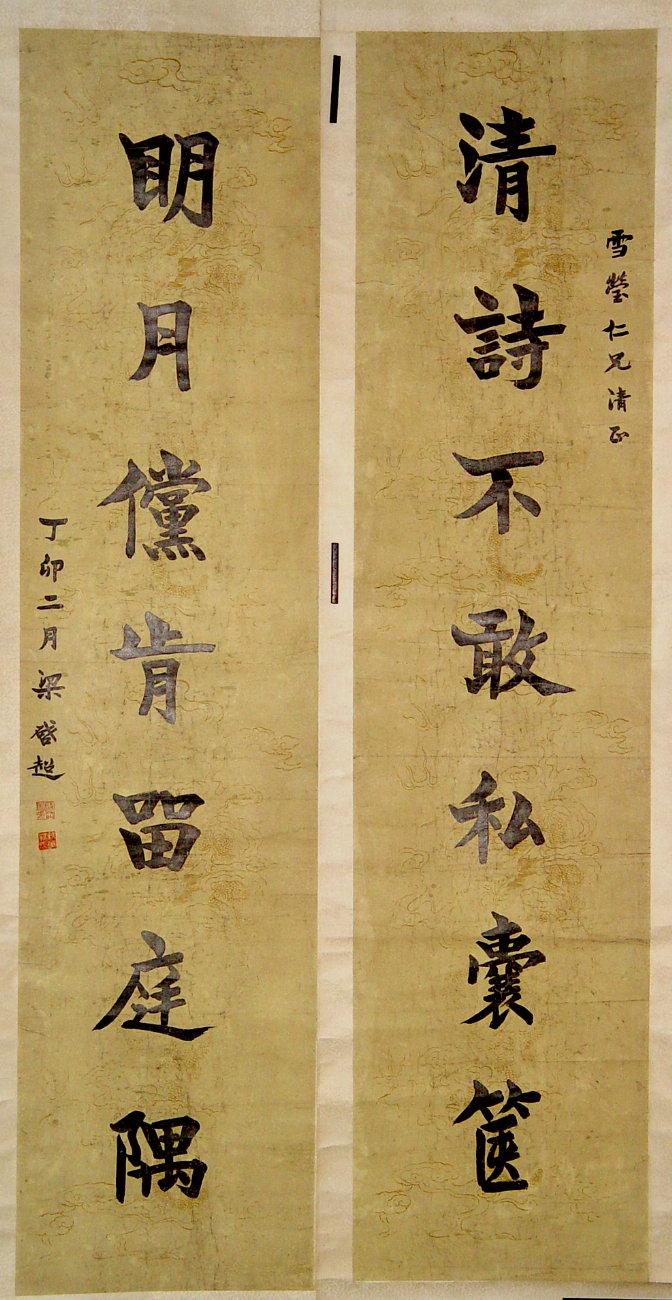 雪瑩仁兄清正
清詩不敢私囊篋
明月儻肯留庭隅
丁卯二月梁啓超